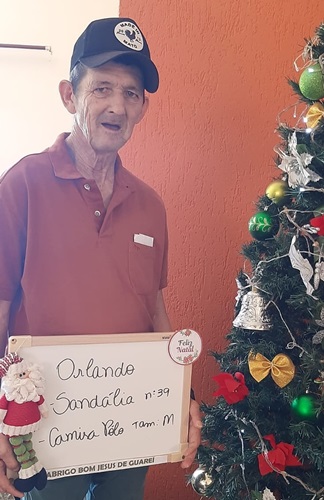 Feliz
Natal
Orlando
Sandália nº:39
- Camisa Polo Tam: M
ABRIGO BOM JESUS DE GUAREÍ